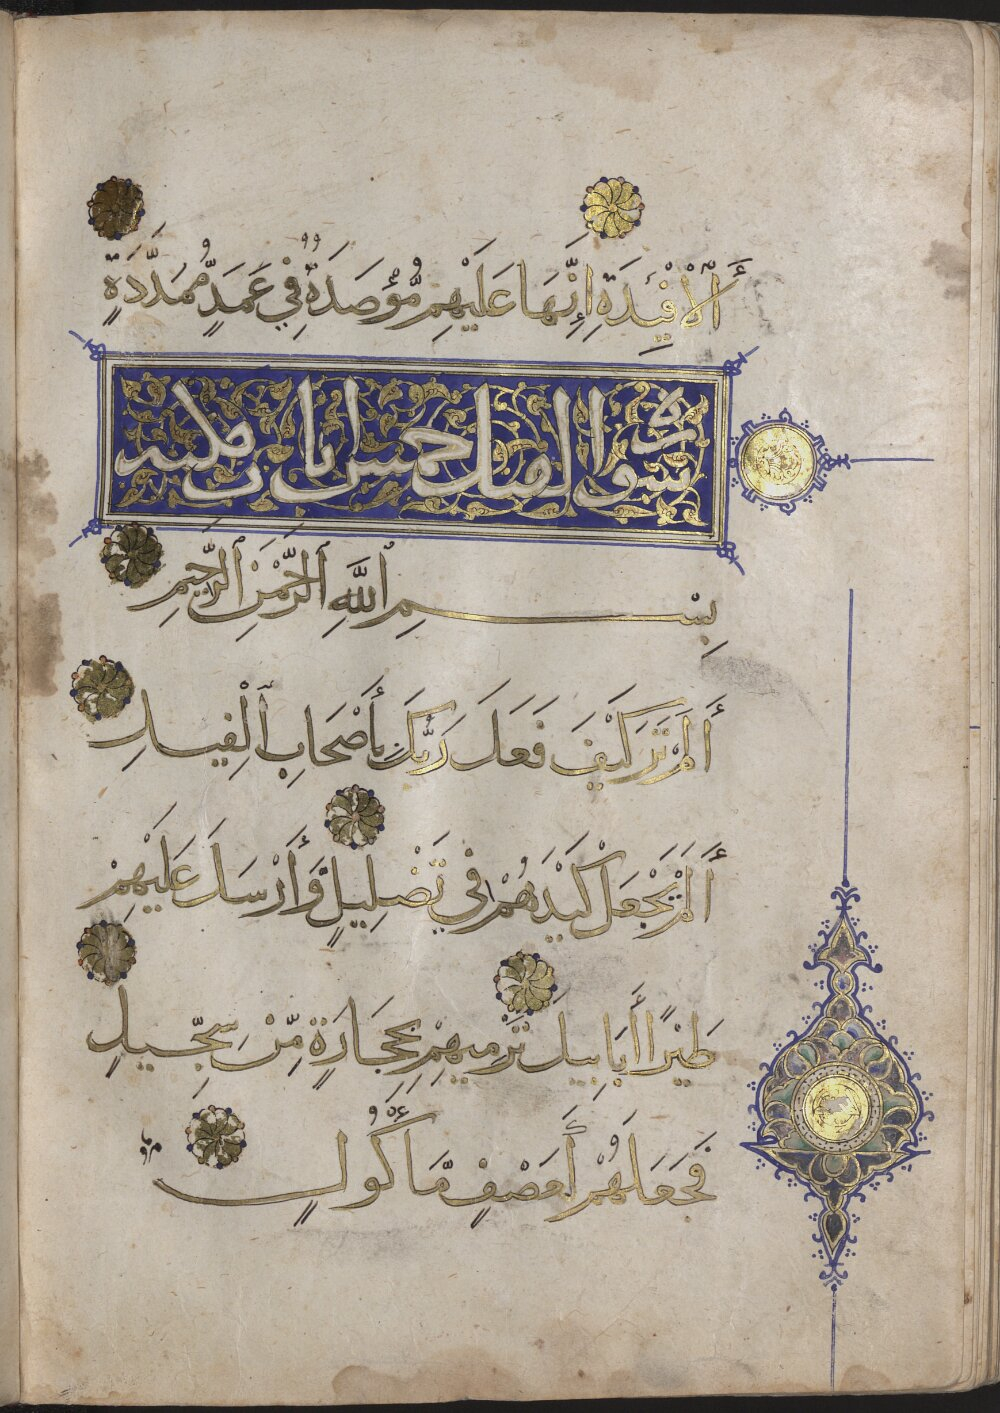 ٱلْأَفْئِدَةِ إِنَّهَا عَلَيْهِمْ مُّؤْصَدَةٌ فِي عَمَدٍ مُّمَدَّدَةٍ
سورة الفيل خمس آيات مكية
بِسْمِ ٱللَّهِ ٱلرَّحْمَنِ ٱلرَّحِيمِ
أَلَمْ تَرَ كَيْفَ فَعَلَ رَبُّكَ بِأَصْحَابِ ٱلْفِيلِ
أَلَمْ يَجْعَلْ كَيْدَهُمْ فِي تَضْلِيلٍ وَّأَرْسَلَ عَلَيْهِمْ
طَيْرًا أَبَابِيلَ تَرْمِيهِمْ بِحِجَارَةٍ مِّنْ سِجِّيلٍ
فَجَعَلَهُمْ كَعَصْفٍ مَّأْكُولٍ